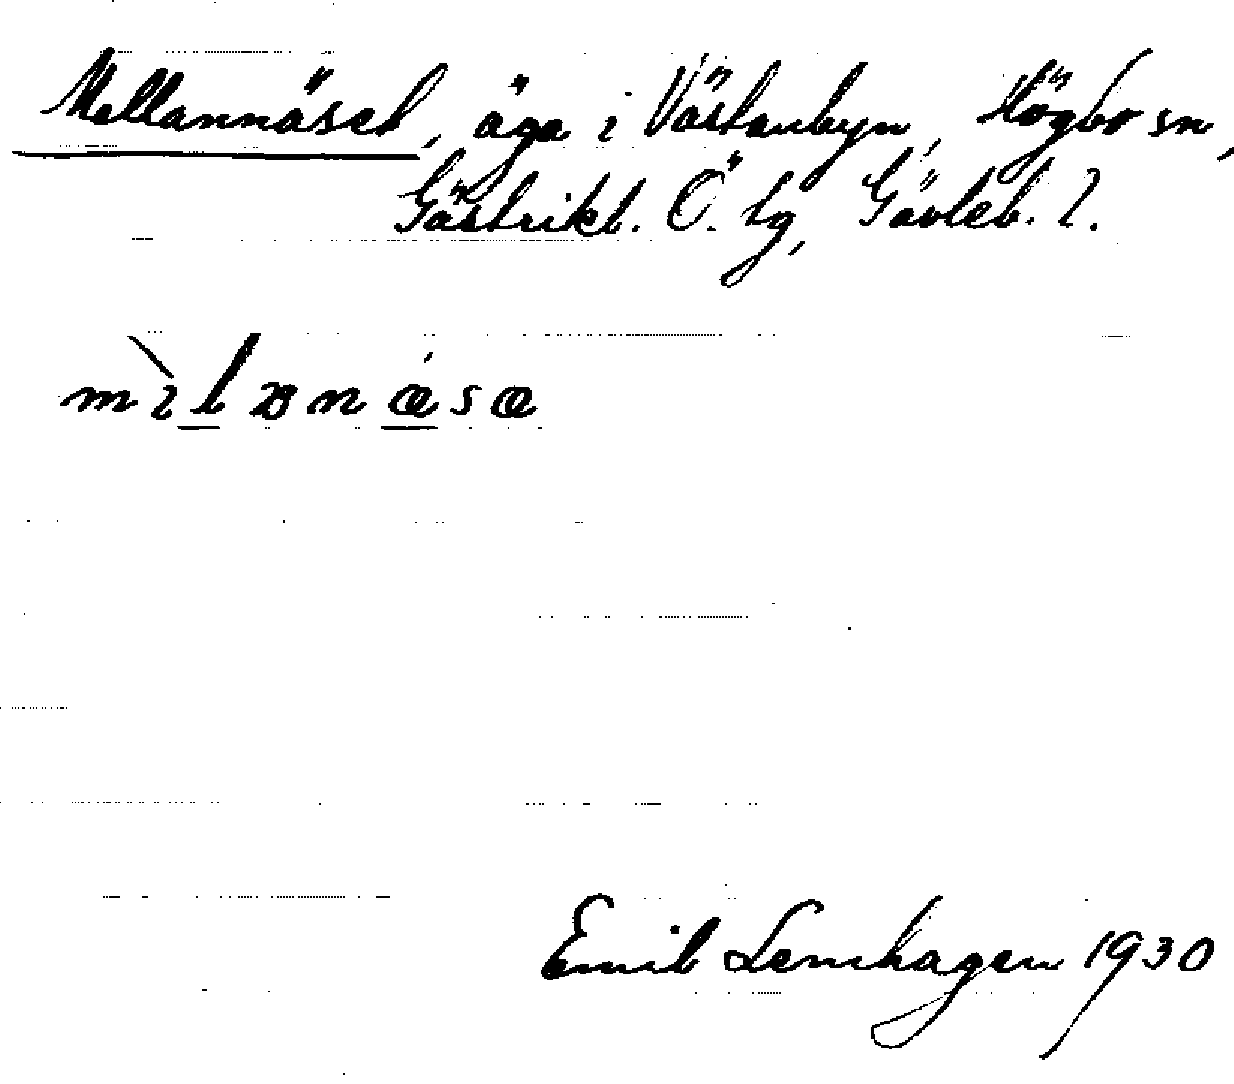 Mellannäset, äga i Västanbyn, Högbo sn,
Gästrikl. Ö. tg, Gävleb. l.
Emil Lenhagen 1930